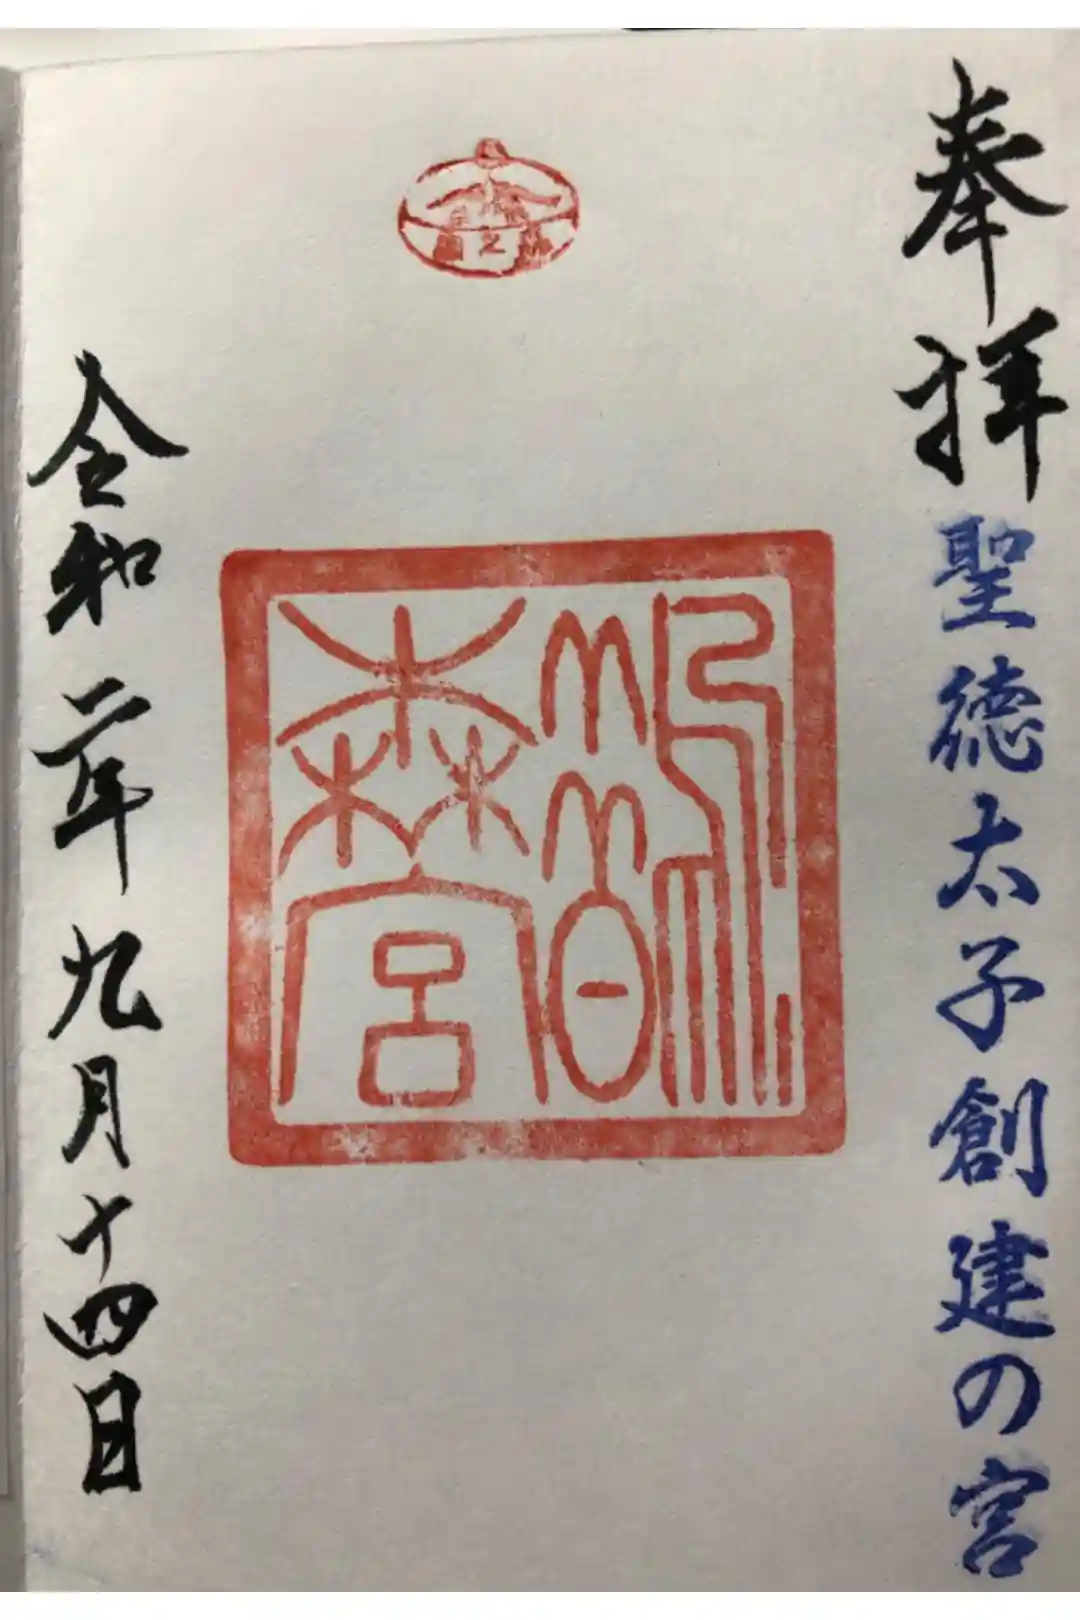 奉拝
聖徳太子創建の宮
鵲
森宮
令和二年九月十四日